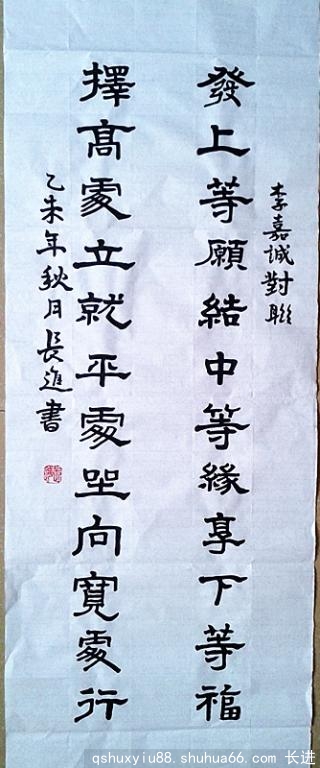 李嘉誠對聯
發上等願結中等緣享下等福
擇髙處立就平處坐向寬處行
乙未年秋月長進書
qshuxyiu88.shuhua66.com 长进